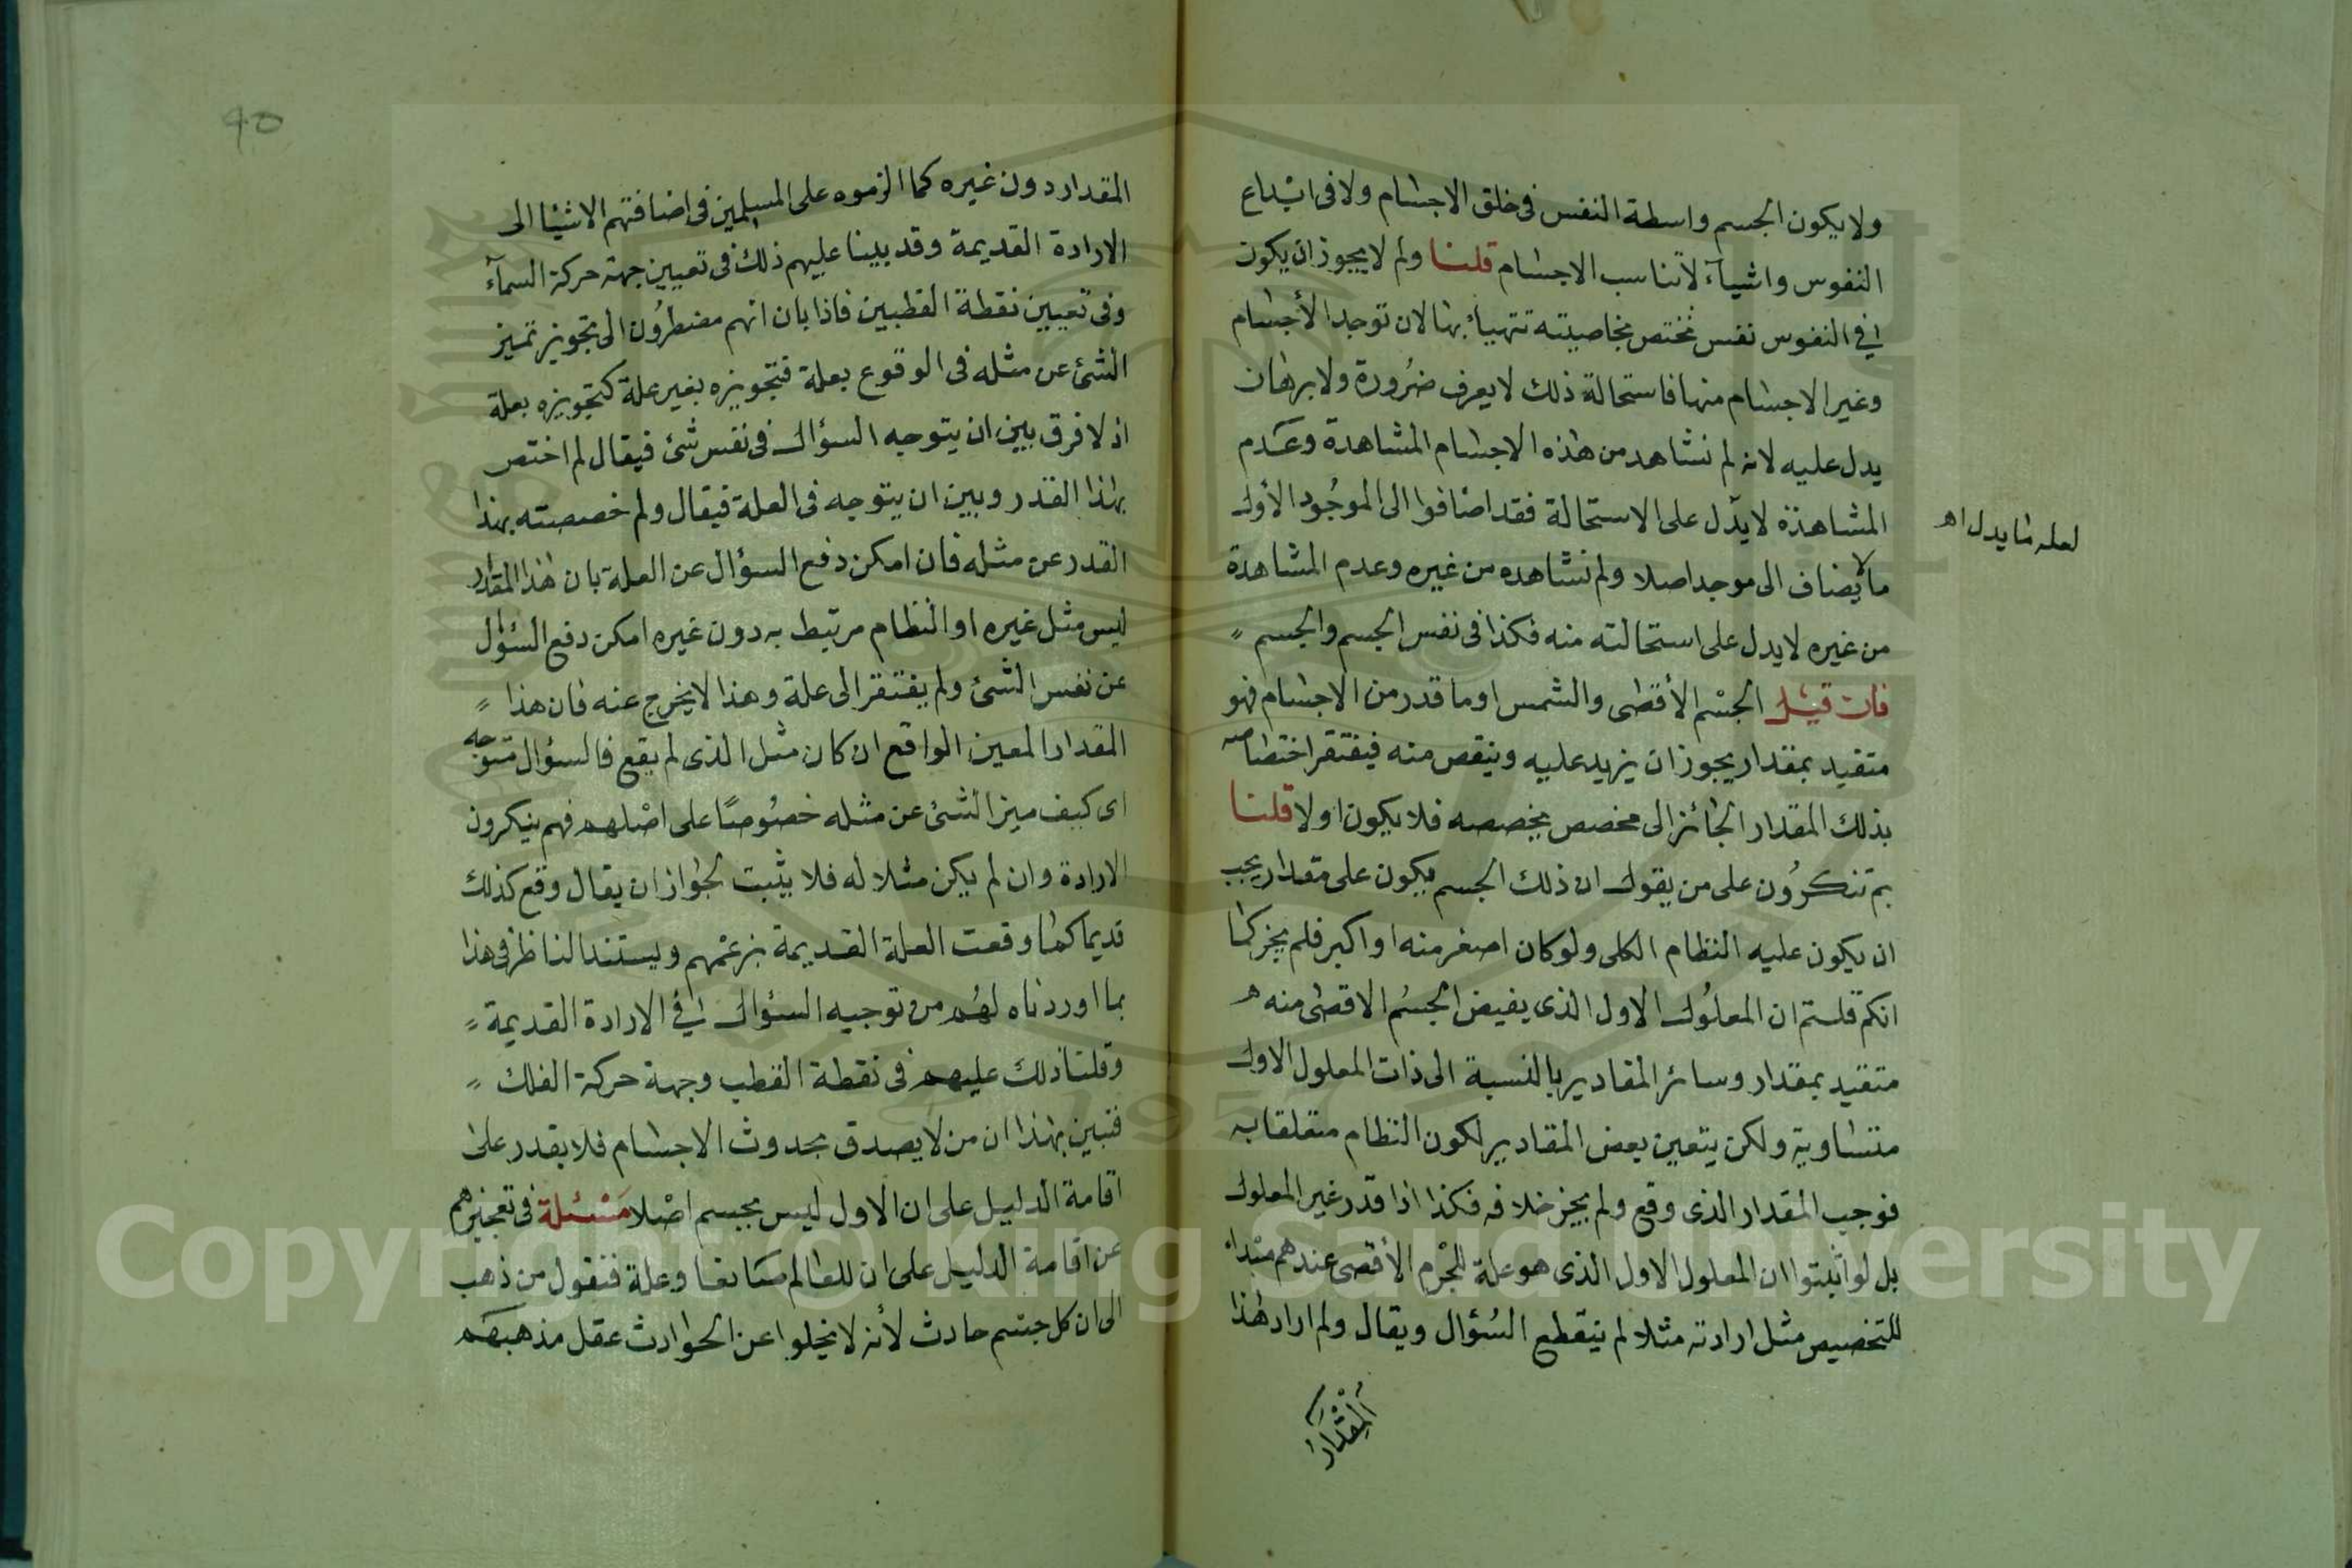 ولا يكون الجسم واسطة النفس فى خلق الاجسام ولا فى ابداع
النفوس واشيآء لا تناسب الاجسام قلنا ولم لا يجوز ان يكون
فى النفوس نفس تختص بخاصيته تتهيأ بها لان توجد الأجسام
وغير الاجسام منها فاستحالة ذلك لا يعرف ضرورة ولا برهان
يدل عليه لانه لم نشاهد من هذه الاجسام المشاهدة وعدم
المشاهدة لا يدل على الاستحالة فقد اضافوا الى الموجود الأول
لعله ما يدل اه
ما لا يضاف الى موجد اصلا ولم نشاهده من غيره وعدم المشاهدة
من غيره لا يدل على استحالته منه فكذا فى نفس الجسم والجسم
فان قيل الجسم الأقصى والشمس او ما قدر من الاجسام فهو
متقيد بمقدار يجوز ان يزيد عليه وينقص منه فيفتقر اختصاصه
بذلك المقدار الجائز الى مخصص يخصصه فلا يكون اولا قلنا
بم تنكرون على من يقول ان ذلك الجسم يكون على مقدار يجب
ان يكون عليه النظام الكلى ولو كان اصغر منه او اكبر فلم يجز كما
انكم قلتم ان المعلول الاول الذى يفيض الجسم الاقصى منه
متقيد بمقدار وسائر المقادير بالنسبة الى ذات المعلول الاول
متساوية ولكن يتعين بعض المقادير لكون النظام متعلقا به
فوجب المقدار الذى وقع ولم يجز خلافه فكذا اذا قدر غير المعلول
بل لو اثبتوا ان المعلول الاول الذى هو علة للجرم الأقصى عندهم مبداء
للتخصيص مثل ارادته مثلا لم ينقطع السؤال ويقال ولم اراد هذا
المقدار
40
المقدار دون غيره كما الزموه على المسلمين فى اضافتهم الاشيا الى
الارادة القديمة وقد بينا عليهم ذلك فى تعيين جهة حركة السمآء
وفى تعيين نقطة القطبين فاذا بان انهم مضطرون الى تجويز تميز
الشئ عن مثله فى الوقوع بعلة فتجويزه بغير علة كتجويزه بعلة
اذ لا فرق بين ان يتوجه السؤال فى نفس شئ فيقال لم اختص
بهذا القدر وبين ان يتوجه فى العلة فيقال ولم خصصته بهذا
القدر عن مثله فان امكن دفع السؤال عن العلة بان هذا المقدار
ليس مثل غيره او النظام مرتبط به دون غيره امكن دفع السؤال
عن نفس الشئ ولم يفتقر الى علة وهذا لا يخرج عنه فان هذا
المقدار المعين الواقع ان كان مثل الذى لم يقع فالسؤال متوجه
اى كيف ميز الشئ عن مثله خصوصًا على اصلهم فهم ينكرون
الارادة وان لم يكن مثلا له فلا يثبت الجواز ان يقال وقع كذلك
قديما كما وقعت العلة القديمة بزعمهم ويستند الناظر فى هذا
بما اوردناه لهم من توجيه السؤال فى الارادة القديمة
وقلنا ذلك عليهم فى نقطة القطب وجهة حركة الفلك
فتبين بهذا ان من لا يصدق بحدوث الاجسام فلا يقدر على
اقامة الدليل على ان الاول ليس بجسم اصلا مسئلة فى تعجيزهم
عن اقامة الدليل على ان للعالم صانعا وعلة فنقول من ذهب
الى ان كل جسم حادث لأنه لا يخلوا عن الحوادث عقل مذهبهم
Copyright © King Saud University
1957